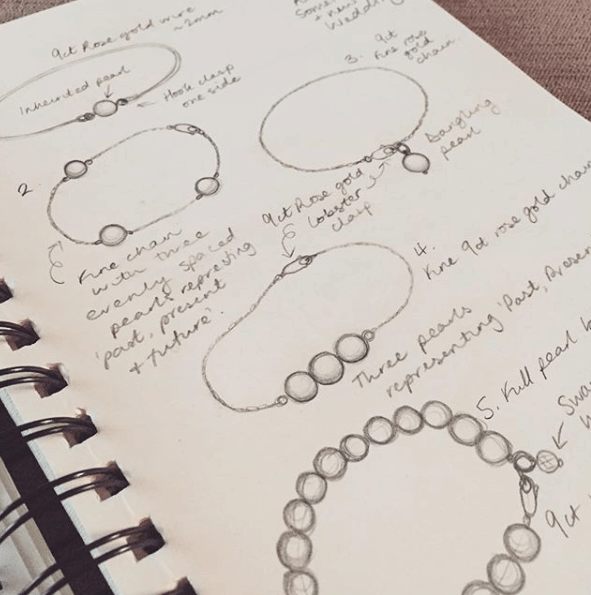 9ct Rose gold wire
~2mm
Inherited pearl
Hook clasp
one side
Some
+ new
Wedding
3. 9ct
Fine rose
gold
chain.
Dangling
pearl
2.
Fine chain
with three
evenly spaced
pearls represting
'past, present
+ future'.
9ct Rose gold
lobster
clasp
4.
Fine 9ct rose gold chain
Three pearls
representing 'Past, Presen
5. Full pearl b
Swa
9ct